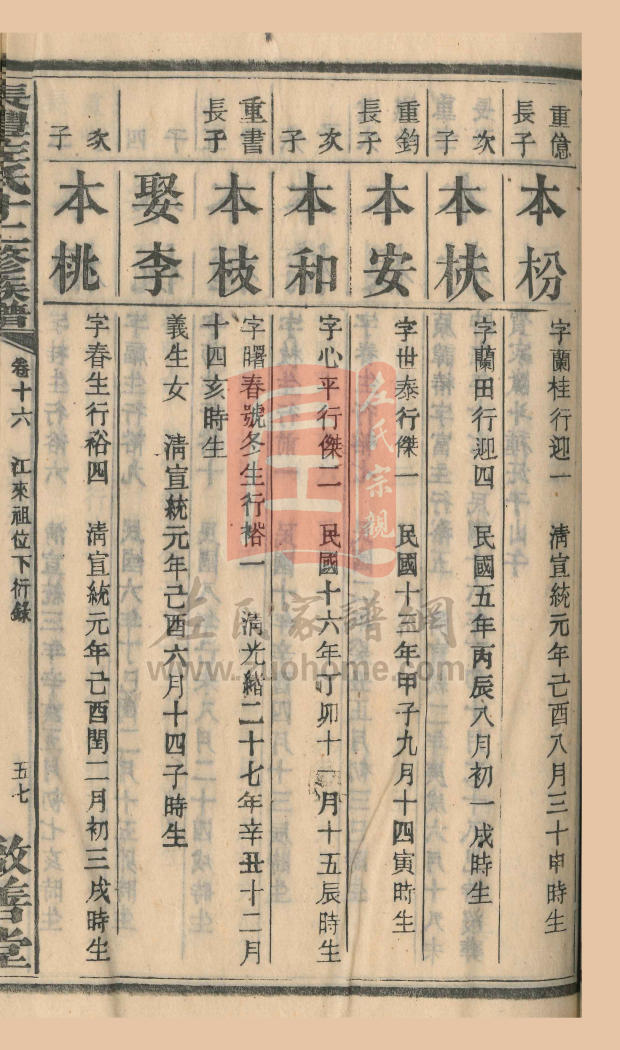 重億
長子
本枌
字蘭桂行迎一　清宣統元年己酉八月三十申時生
次
子
本扶
字蘭田行迎四　民國五年丙辰八月初一戌時生
重鈞
長子
本安
字世泰行傑一　民國十三年甲子九月十四寅時生
次
子
本和
字心平行傑二　民國十六年丁卯十一月十五辰時生
重書
長子
本枝
字曙春號冬生行裕一　清光緒二十七年辛丑十二月
十四亥時生
娶李
義生女　清宣統元年己酉六月十四子時生
次
子
本桃
字春生行裕四　清宣統元年己酉閏二月初三戌時生
長澧左氏十二修族譜
卷十六　江來祖位下衍錄
五七
敦善堂
左氏宗親
左氏家譜網
www.zuohome.com